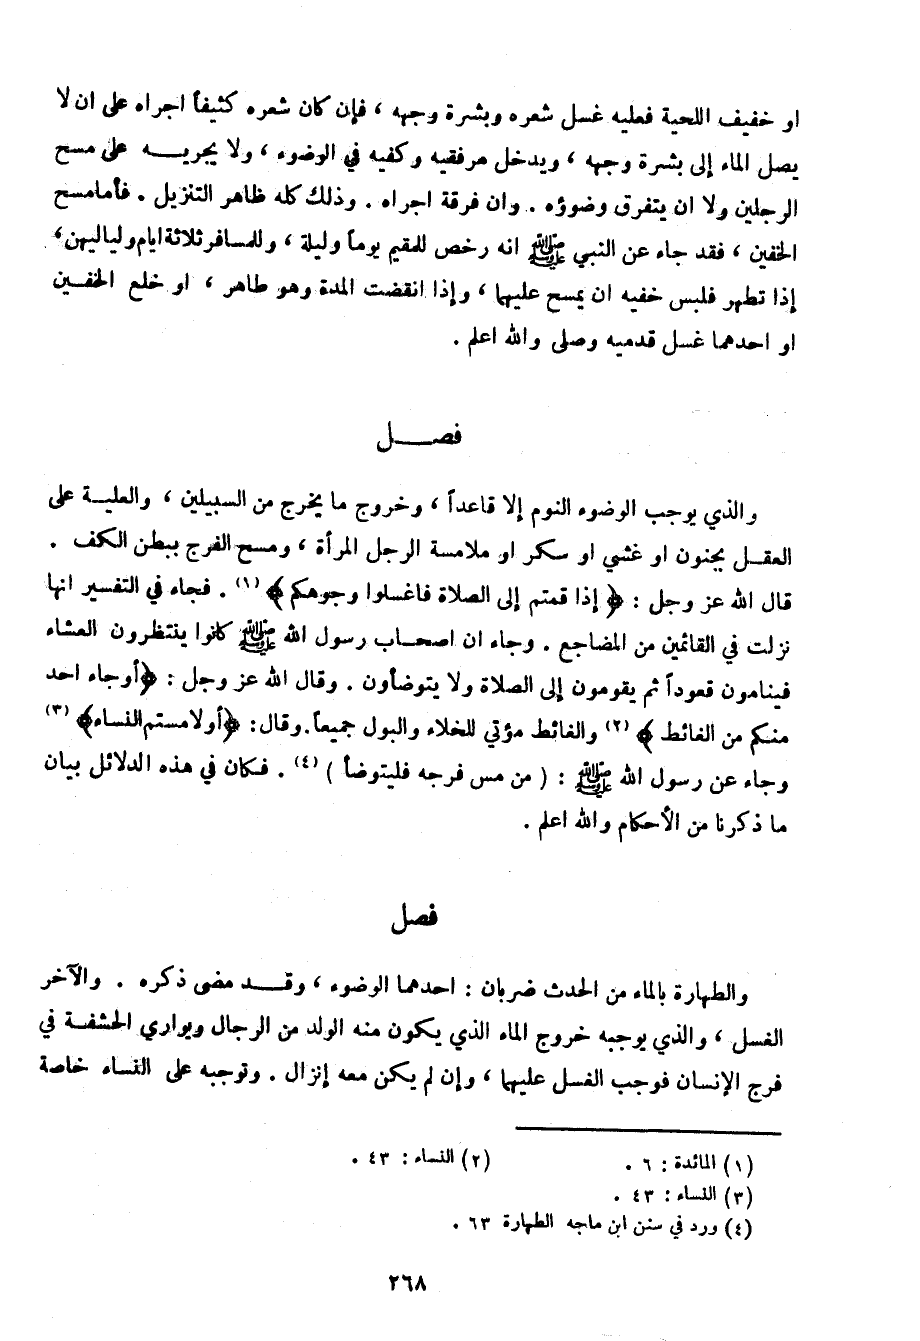 او خفيف اللحية فعليه غسل شعره وبشرة وجهه ، فإن كان شعره كثيفاً اجراه على ان لا
يصل الماء إلى بشرة وجهه ، ويدخل مرفقيه وكفيه في الوضوء ، ولا يجريــه على مسح
الرجلين ولا ان يتفرق وضوؤه . وان فرقة اجراه . وذلك كله ظاهر التنزيل . فأما مسح
الخفين ، فقد جاء عن النبي ﷺ انه رخص للمقيم يوماً وليلة ، وللمسافر ثلاثة ايام ولياليهن ،
إذا تطهر فلبس خفيه ان يمسح عليها ، وإذا انقضت المدة وهو طاهر ، او خلع الخفين
او احدهما غسل قدميه وصلى والله اعلم .
فصــل
والذي يوجب الوضوء النوم إلا قاعداً ، وخروج ما يخرج من السبيلين ، والعلبــة على
العقــل بجنون او غشي او سكر او ملامسة الرجل المرأة ، ومسح الفرج ببطن الكف .
قال الله عز وجل : ﴿ إذا قمتم إلى الصلاة فاغسلوا وجوهكم ﴾ (١) . فجاء في التفسير انها
نزلت في القائمين من المضاجع . وجاء ان اصحــاب رسول الله ﷺ كانوا ينتظرون العشاء
فينامون قعوداً ثم يقومون إلى الصلاة ولا يتوضأون . وقال الله عز وجل : ﴿أوجاء احد
منكم من الغائط ﴾ (٢) والغائط مؤتي للخلاء والبول جميعاً. وقال: ﴿أولامستم النساء﴾ (٣)
وجاء عن رسول الله ﷺ : ( من مس فرجه فليتوضأ ) (٤) . فكان في هذه الدلائل بيان
ما ذكرنا من الأحكام والله اعلم .
فصل
والطهارة بالماء من الحدث ضربان : احدهما الوضوء ، وقــد مضى ذكره . والآخر
الغسل ، والذي يوجبه خروج الماء الذي يكون منه الولد من الرجال ويواري الحشفــة في
فرج الإنسان فوجب الغسل عليها ، وإن لم يكن معه إنزال . وتوجبه على النساء خاصة
(١) المائدة : ٦ . (٢) النساء : ٤٣ .
(٣) النساء : ٤٣ .
(٤) ورد في سنن ابن ماجه الطهارة ٦٣ .
٢٦٨